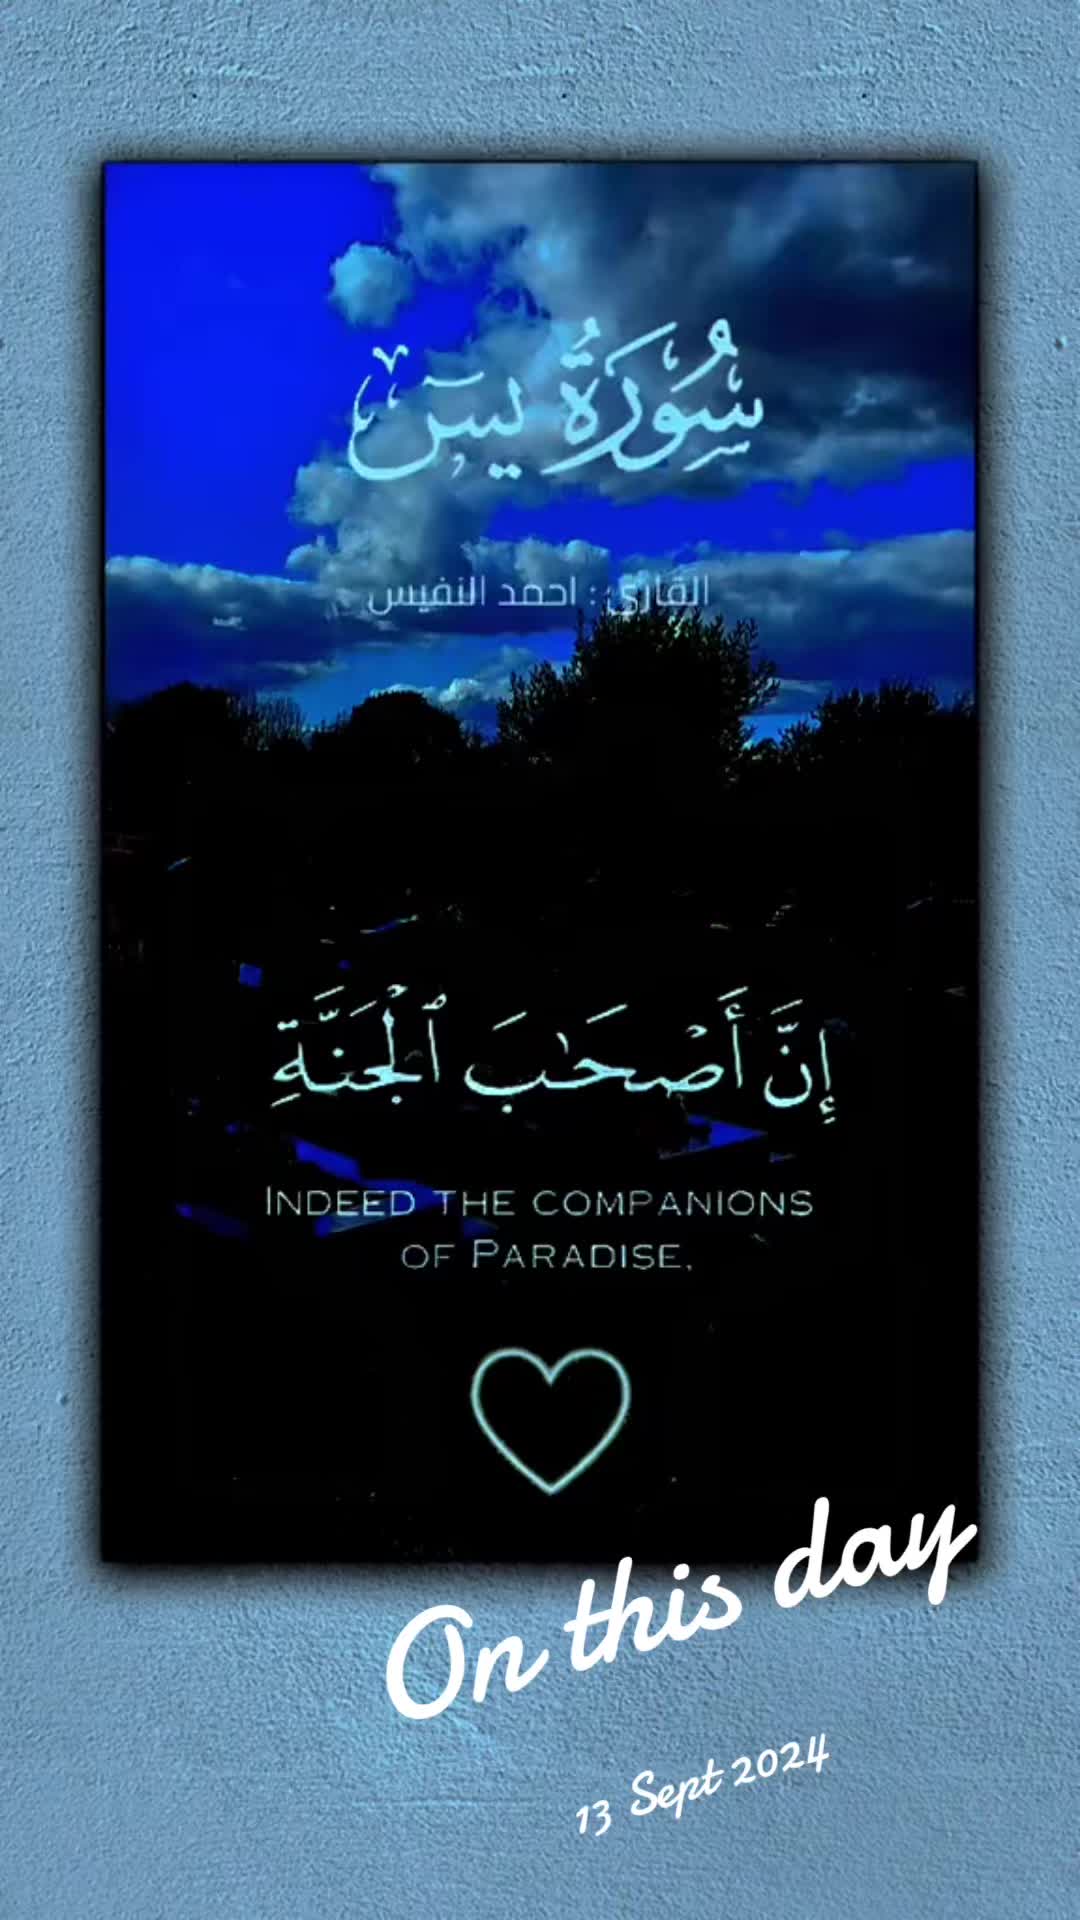 سُورَةُ يسٓ
القارئ : احمد النفيس
إِنَّ أَصْحَٰبَ ٱلْجَنَّةِ
INDEED THE COMPANIONS
OF PARADISE,
On this day
13 Sept 2024